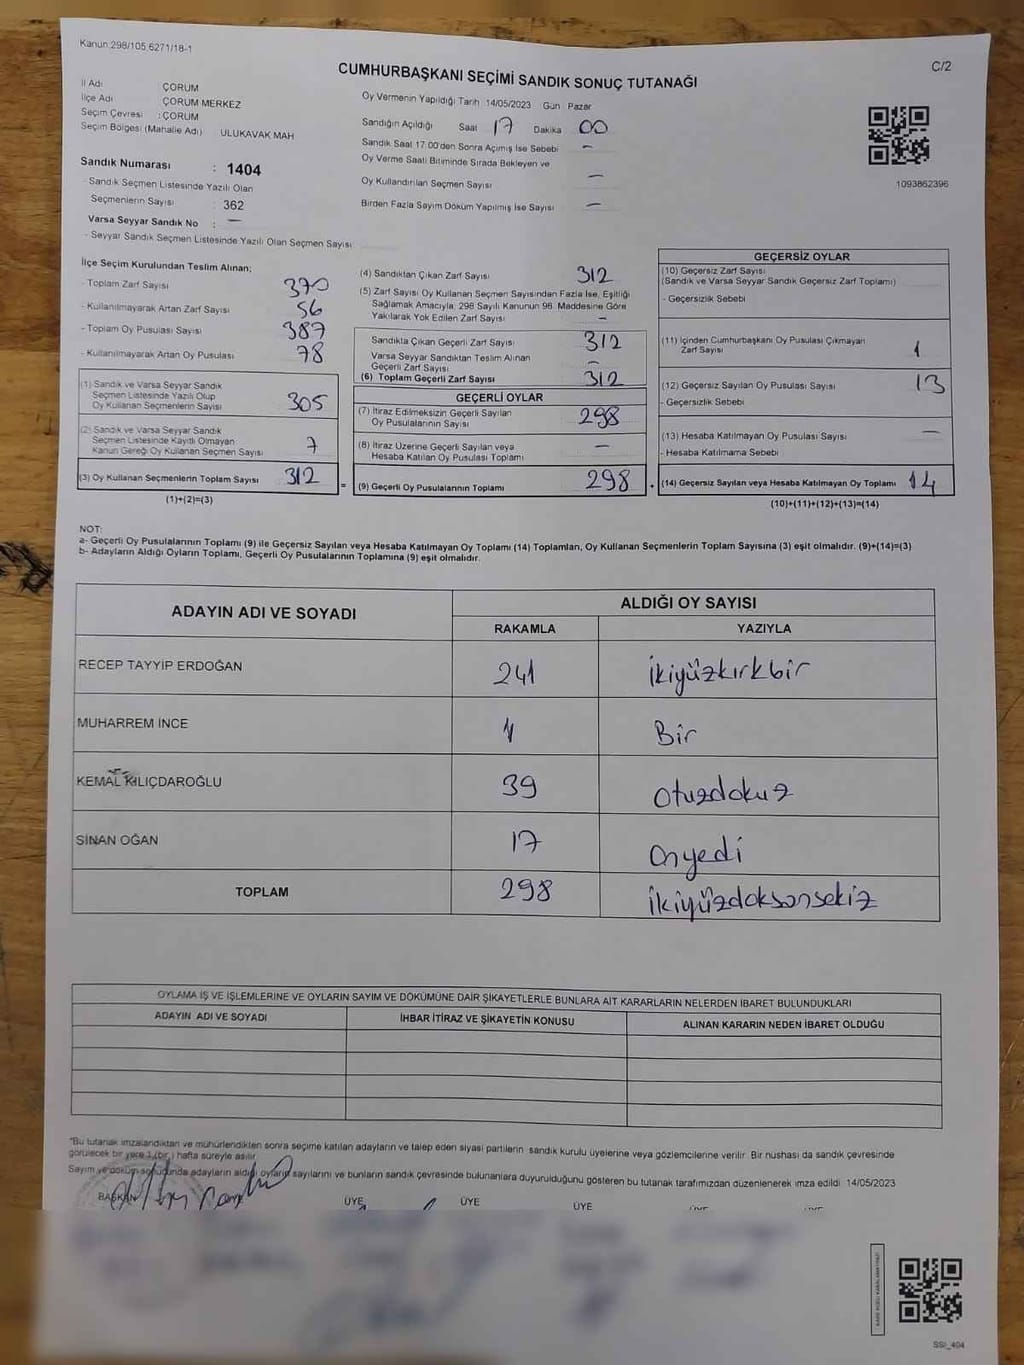 Kanun 298/105 6271/18-1
C/2
CUMHURBAŞKANI SEÇİMİ SANDIK SONUÇ TUTANAĞI
İl Adı ÇORUM
İlçe Adı ÇORUM MERKEZ
Seçim Çevresi : ÇORUM
Seçim Bölgesi (Mahalle Adı) ULUKAVAK MAH
Sandık Numarası : 1404
- Sandık Seçmen Listesinde Yazılı Olan
Seçmenlerin Sayısı : 362
Varsa Seyyar Sandık No : —
- Seyyar Sandık Seçmen Listesinde Yazılı Olan Seçmen Sayısı
Oy Vermenin Yapıldığı Tarih 14/05/2023 Gün Pazar
Sandığın Açıldığı Saat 17 Dakika 00
Sandık Saat 17.00'den Sonra Açımış İse Sebebi —
Oy Verme Saati Bitiminde Sırada Bekleyen ve
Oy Kullandırılan Seçmen Sayısı —
Birden Fazla Sayım Döküm Yapılmış İse Sayısı —
1093862396
İlçe Seçim Kurulundan Teslim Alınan;
- Toplam Zarf Sayısı 370
- Kullanılmayarak Artan Zarf Sayısı 56
- Toplam Oy Pusulası Sayısı 387
- Kullanılmayarak Artan Oy Pusulası 78
(1) Sandık ve Varsa Seyyar Sandık
Seçmen Listesinde Yazılı Olup
Oy Kullanan Seçmenlerin Sayısı 305
(2) Sandık ve Varsa Seyyar Sandık
Seçmen Listesinde Kayıtlı Olmayan
Kanun Gereği Oy Kullanan Seçmen Sayısı 7
(3) Oy Kullanan Seçmenlerin Toplam Sayısı 312 =
(1)+(2)=(3)
(4) Sandıktan Çıkan Zarf Sayısı 312
(5) Zarf Sayısı Oy Kullanan Seçmen Sayısından Fazla İse, Eşitliği
Sağlamak Amacıyla; 298 Sayılı Kanunun 98. Maddesine Göre
Yakılarak Yok Edilen Zarf Sayısı —
Sandıkta Çıkan Geçerli Zarf Sayısı 312
Varsa Seyyar Sandıktan Teslim Alınan
Geçerli Zarf Sayısı —
(6) Toplam Geçerli Zarf Sayısı 312
GEÇERLİ OYLAR
(7) İtiraz Edilmeksizin Geçerli Sayılan
Oy Pusulalarının Sayısı 298
(8) İtiraz Üzerine Geçerli Sayılan veya
Hesaba Katılan Oy Pusulası Toplamı —
(9) Geçerli Oy Pusulalarının Toplamı 298
GEÇERSİZ OYLAR
(10) Geçersiz Zarf Sayısı
(Sandık ve Varsa Seyyar Sandık Geçersiz Zarf Toplamı)
- Geçersizlik Sebebi
(11) İçinden Cumhurbaşkanı Oy Pusulası Çıkmayan
Zarf Sayısı 1
(12) Geçersiz Sayılan Oy Pusulası Sayısı 13
- Geçersizlik Sebebi
(13) Hesaba Katılmayan Oy Pusulası Sayısı —
- Hesaba Katılmama Sebebi
(14) Geçersiz Sayılan veya Hesaba Katılmayan Oy Toplamı 14
(10)+(11)+(12)+(13)=(14)
NOT:
a- Geçerli Oy Pusulalarının Toplamı (9) ile Geçersiz Sayılan veya Hesaba Katılmayan Oy Toplamı (14) Toplamları, Oy Kullanan Seçmenlerin Toplam Sayısına (3) eşit olmalıdır. (9)+(14)=(3)
b- Adayların Aldığı Oyların Toplamı, Geçerli Oy Pusulalarının Toplamına (9) eşit olmalıdır.
ADAYIN ADI VE SOYADI ALDIĞI OY SAYISI
RAKAMLA YAZIYLA
RECEP TAYYİP ERDOĞAN 241 İkiyüzkırkbir
MUHARREM İNCE 1 Bir
KEMAL KILIÇDAROĞLU 39 otuzdokuz
SİNAN OĞAN 17 Onyedi
TOPLAM 298 İkiyüzdoksansekiz
OYLAMA İŞ VE İŞLEMLERİNE VE OYLARIN SAYIM VE DÖKÜMÜNE DAİR ŞİKAYETLERLE BUNLARA AİT KARARLARIN NELERDEN İBARET BULUNDUKLARI
ADAYIN ADI VE SOYADI İHBAR İTİRAZ VE ŞİKAYETİN KONUSU ALINAN KARARIN NEDEN İBARET OLDUĞU
*Bu tutanak imzalandıktan ve mühürlendikten sonra seçime katılan adayların ve talep eden siyasi partilerin sandık kurulu üyelerine veya gözlemcilerine verilir. Bir nüshası da sandık çevresinde
görülecek bir yere 1 (bir ) hafta süreyle asılır.
Sayım ve döküm sonucunda adayların aldığı oyların sayılarını ve bunların sandık çevresinde bulunanlara duyurulduğunu gösteren bu tutanak tarafımızdan düzenlenerek imza edildi 14/05/2023
BAŞKAN ÜYE ÜYE ÜYE
SSİ_404